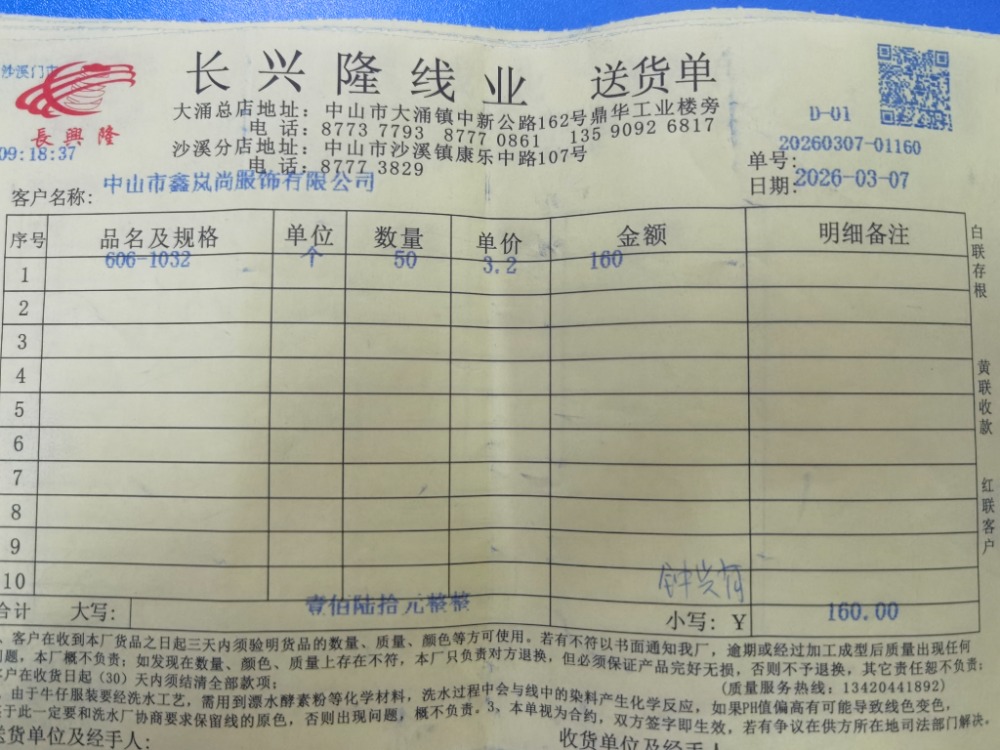 沙溪门市
长兴隆线业 送货单
長興隆
大涌总店地址：中山市大涌镇中新公路162号鼎华工业楼旁
电 话：8773 7793 8777 0861 135 9092 6817
沙溪分店地址：中山市沙溪镇康乐中路107号
电 话：8777 3829
D-01
09:18:37
单号：20260307-01160
日期：2026-03-07
客户名称：中山市鑫岚尚服饰有限公司
序号 品名及规格 单位 数量 单价 金额 明细备注
1 606-1032 个 50 3.2 160
2
3
4
5
6
7
8
9
10
合计 大写： 壹佰陆拾元整整 小写：Y 160.00
白联存根
黄联收款
红联客户
、客户在收到本厂货品之日起三天内须验明货品的数量、质量、颜色等方可使用。若有不符以书面通知我厂，逾期或经过加工成型后质量出现任何
问题，本厂概不负责；如发现在数量、颜色、质量上存在不符，本厂只负责对方退换，但必须保证产品完好无损，否则不予退换，其它责任恕不负责；
客户在收货日起（30）天内须结清全部款项；
（质量服务热线：13420441892）
、由于牛仔服装要经洗水工艺，需用到漂水酵素粉等化学材料，洗水过程中会与线中的染料产生化学反应，如果PH值偏高有可能导致线色变色，
鉴于此一定要和洗水厂协商要求保留线的原色，否则出现问题，概不负责。3、本单视为合约，双方签字即生效，若有争议在供方所在地司法部门解决。
送货单位及经手人：
收货单位及经手人